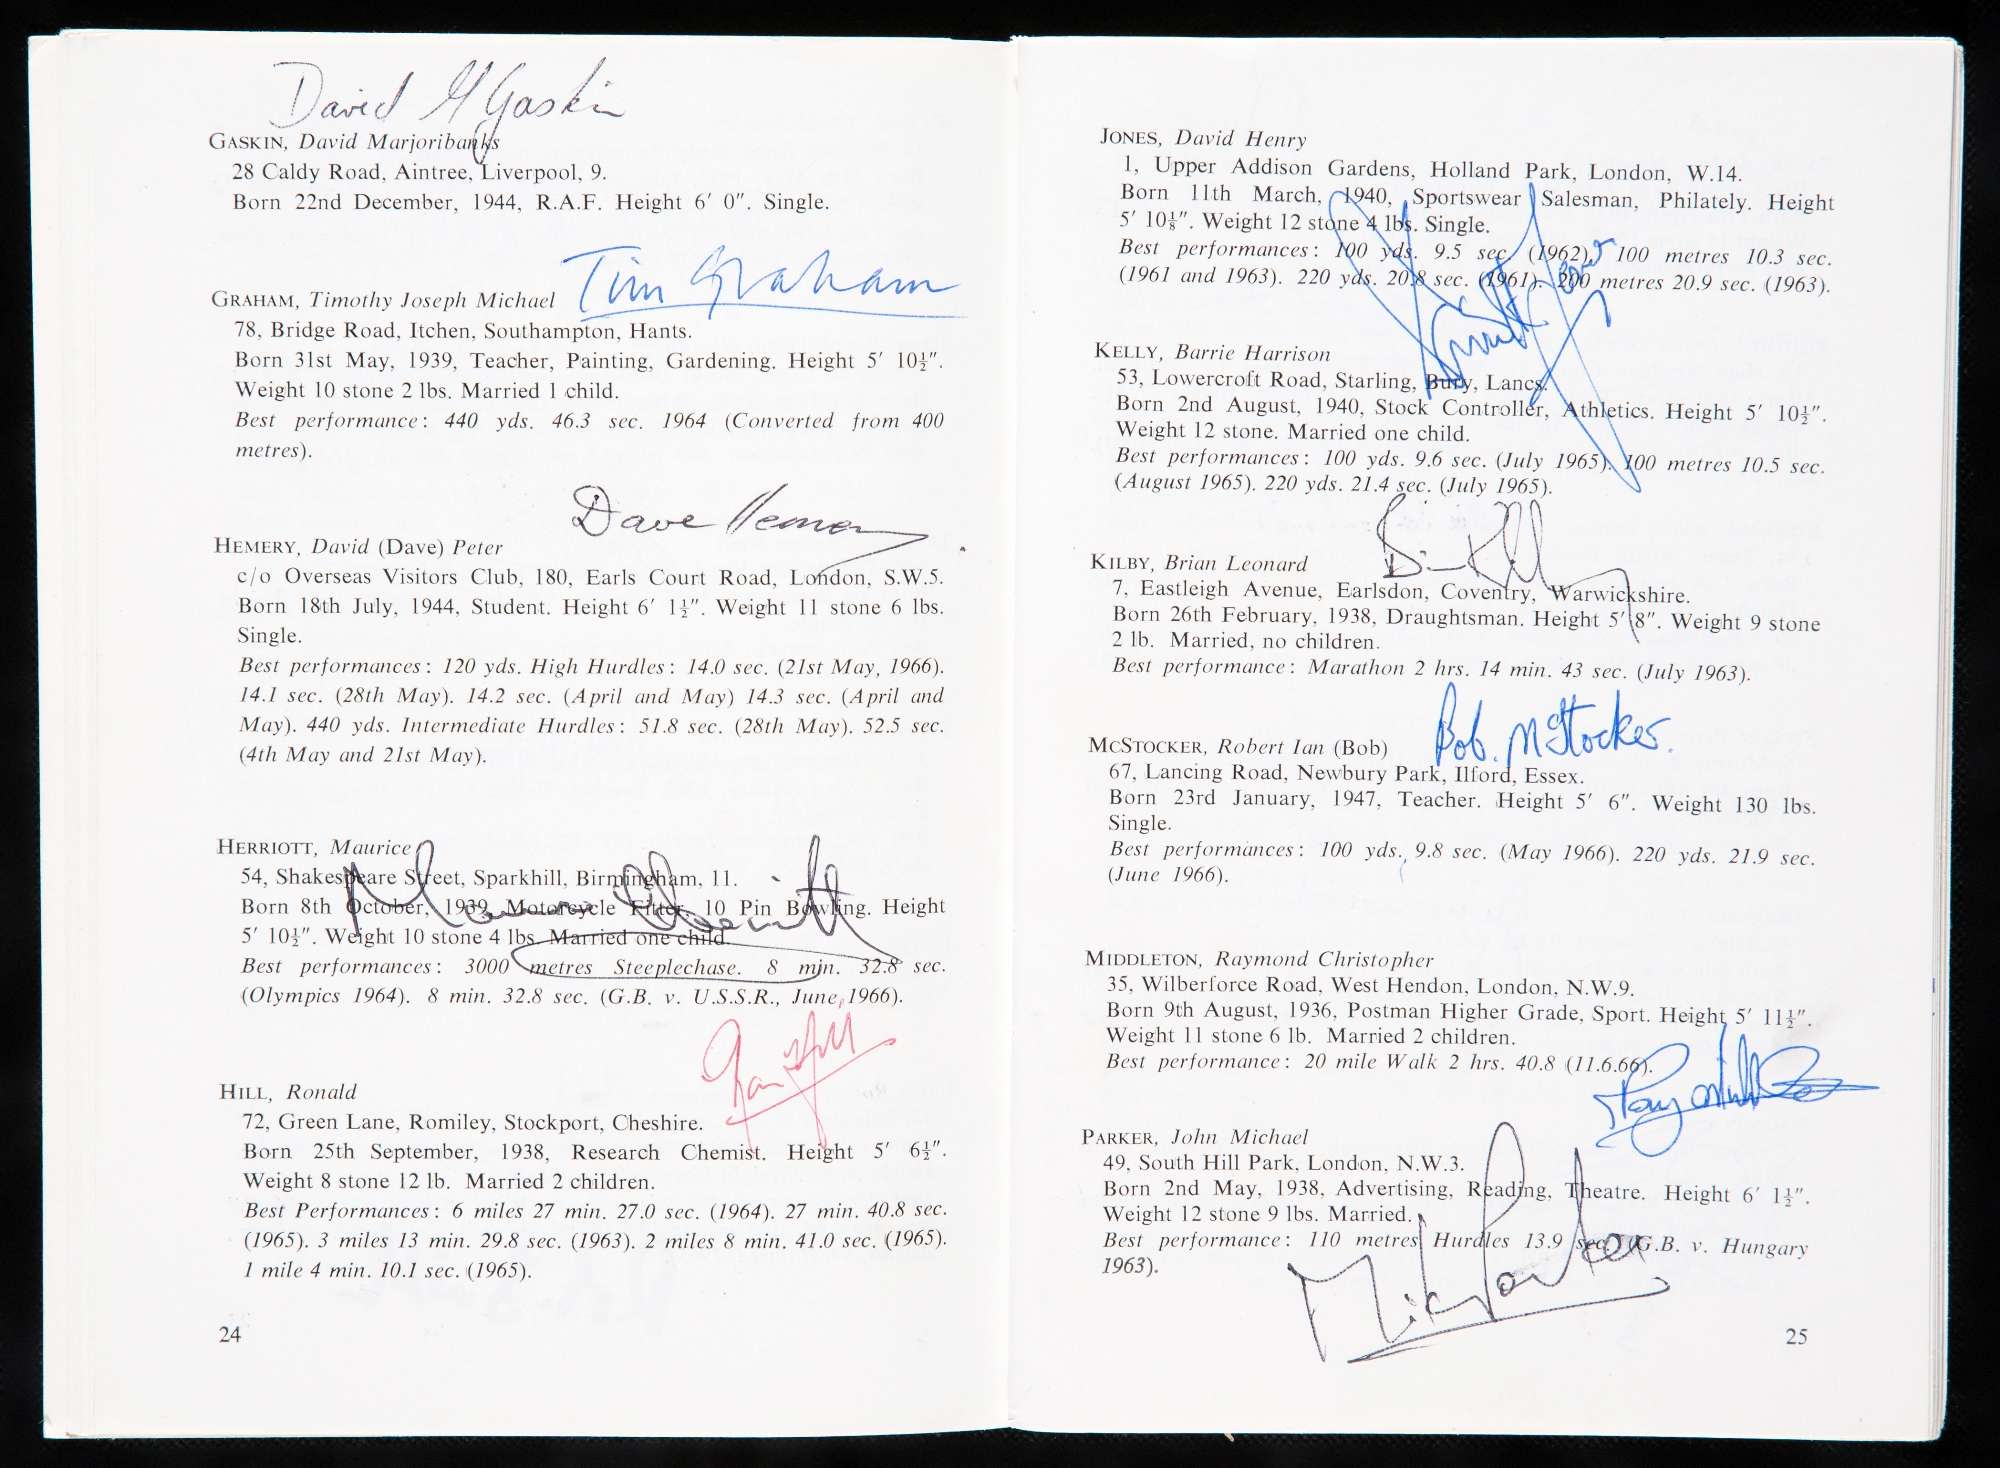 David M Gaskin
GASKIN, David Marjoribanks
28 Caldy Road, Aintree, Liverpool, 9.
Born 22nd December, 1944, R.A.F. Height 6′ 0″. Single.
Tim Graham
GRAHAM, Timothy Joseph Michael
78, Bridge Road, Itchen, Southampton, Hants.
Born 31st May, 1939, Teacher, Painting, Gardening. Height 5′ 10½″.
Weight 10 stone 2 lbs. Married 1 child.
Best performance: 440 yds. 46.3 sec. 1964 (Converted from 400
metres).
Dave Hemery
HEMERY, David (Dave) Peter
c/o Overseas Visitors Club, 180, Earls Court Road, London, S.W.5.
Born 18th July, 1944, Student. Height 6′ 1½″. Weight 11 stone 6 lbs.
Single.
Best performances: 120 yds. High Hurdles: 14.0 sec. (21st May, 1966).
14.1 sec. (28th May). 14.2 sec. (April and May) 14.3 sec. (April and
May). 440 yds. Intermediate Hurdles: 51.8 sec. (28th May). 52.5 sec.
(4th May and 21st May).
HERRIOTT, Maurice
54, Shakespeare Street, Sparkhill, Birmingham, 11.
Born 8th October, 1939, Motorcycle Fitter, 10 Pin Bowling. Height
5′ 10½″. Weight 10 stone 4 lbs. Married one child.
Maurice Herriott
Best performances: 3000 metres Steeplechase. 8 min. 32.8 sec.
(Olympics 1964). 8 min. 32.8 sec. (G.B. v. U.S.S.R., June, 1966).
Ron Hill
HILL, Ronald
72, Green Lane, Romiley, Stockport, Cheshire.
Born 25th September, 1938, Research Chemist. Height 5′ 6½″.
Weight 8 stone 12 lb. Married 2 children.
Best Performances: 6 miles 27 min. 27.0 sec. (1964). 27 min. 40.8 sec.
(1965). 3 miles 13 min. 29.8 sec. (1963). 2 miles 8 min. 41.0 sec. (1965).
1 mile 4 min. 10.1 sec. (1965).
24
JONES, David Henry
1, Upper Addison Gardens, Holland Park, London, W.14.
Born 11th March, 1940, Sportswear Salesman, Philately. Height
5′ 10⅛″. Weight 12 stone 4 lbs. Single.
Best performances: 100 yds. 9.5 sec. (1962). 100 metres 10.3 sec.
(1961 and 1963). 220 yds. 20.8 sec. (1961). 200 metres 20.9 sec. (1963).
Jones
KELLY, Barrie Harrison
53, Lowercroft Road, Starling, Bury, Lancs.
Born 2nd August, 1940, Stock Controller, Athletics. Height 5′ 10½″.
Weight 12 stone. Married one child.
Best performances: 100 yds. 9.6 sec. (July 1965). 100 metres 10.5 sec.
(August 1965). 220 yds. 21.4 sec. (July 1965).
Brian Kilby
KILBY, Brian Leonard
7, Eastleigh Avenue, Earlsdon, Coventry, Warwickshire.
Born 26th February, 1938, Draughtsman. Height 5′ 8″. Weight 9 stone
2 lb. Married, no children.
Best performance: Marathon 2 hrs. 14 min. 43 sec. (July 1963).
Bob. McStocker.
MCSTOCKER, Robert Ian (Bob)
67, Lancing Road, Newbury Park, Ilford, Essex.
Born 23rd January, 1947, Teacher. Height 5′ 6″. Weight 130 lbs.
Single.
Best performances: 100 yds. 9.8 sec. (May 1966). 220 yds. 21.9 sec.
(June 1966).
MIDDLETON, Raymond Christopher
35, Wilberforce Road, West Hendon, London, N.W.9.
Born 9th August, 1936, Postman Higher Grade, Sport. Height 5′ 11½″.
Weight 11 stone 6 lb. Married 2 children.
Best performance: 20 mile Walk 2 hrs. 40.8 (11.6.66).
Ray Middleton
PARKER, John Michael
49, South Hill Park, London, N.W.3.
Born 2nd May, 1938, Advertising, Reading, Theatre. Height 6′ 1½″.
Weight 12 stone 9 lbs. Married.
Best performance: 110 metres Hurdles 13.9 sec. G.B. v. Hungary
1963).
Mike Parker
25